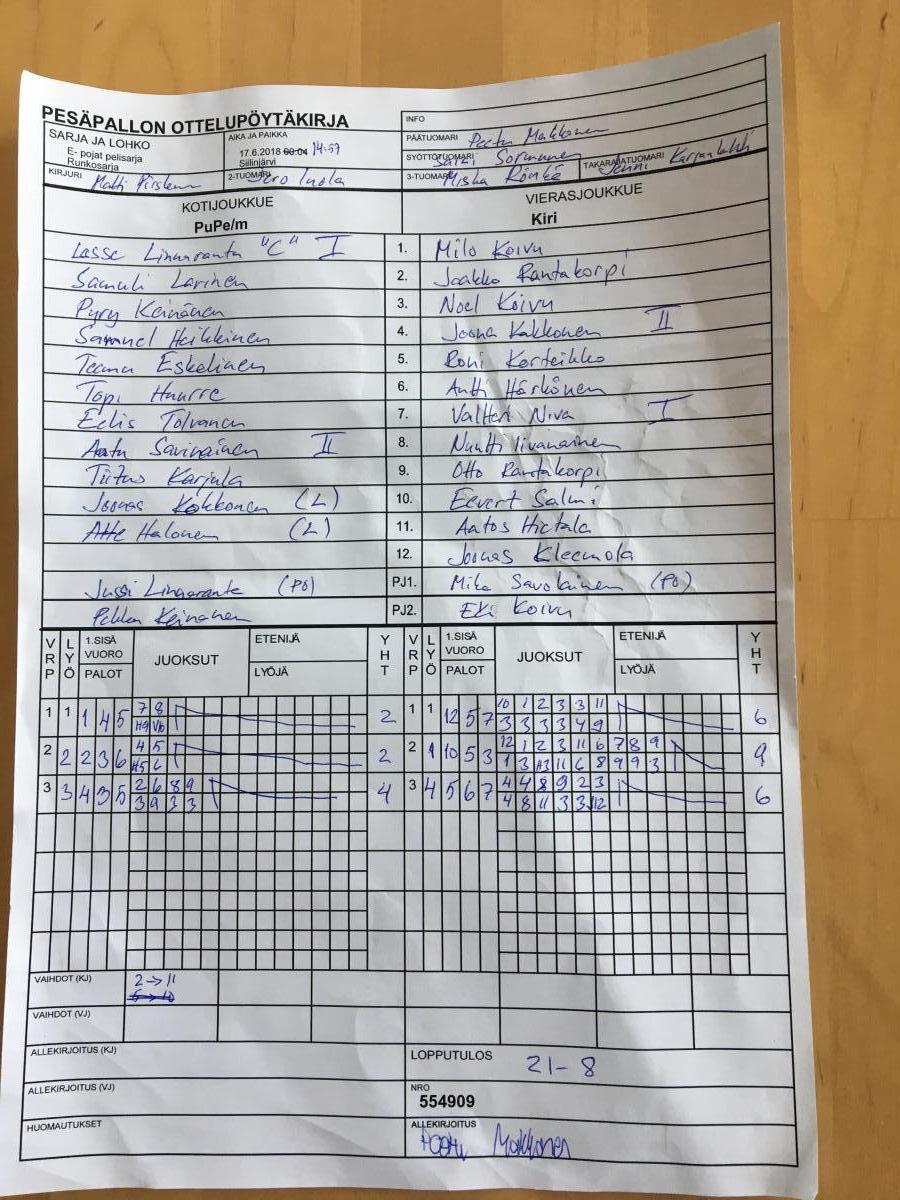 PESÄPALLON OTTELUPÖYTÄKIRJA
SARJA JA LOHKO
E- pojat pelisarja
Runkosarja
AIKA JA PAIKKA
17.6.2018 00:04 14:57
Siilinjärvi
KIRJURI Matti
2-TUOMARI
INFO
PÄÄTUOMARI Peetu Makkonen
SYÖTTÖTUOMARI Sormunen
TAKARAJATUOMARI
3-TUOMARI Miska Rönkä
KOTIJOUKKUE
PuPe/m
VIERASJOUKKUE
Kiri
Lasse Linnaranta "C" I 1. Milo Koivu
Samuli Larinen 2. Jaakko Rantakorpi
Pyry Keinänen 3. Noel Koivu
Samuel Heikkinen 4. Joona Kakkonen II
Teemu Eskelinen 5. Roni Korteikko
Topi Huurre 6. Antti Härkönen
Eelis Tolvanen 7. Valtteri Niva I
Aatu Savinainen II 8. Nuutti Iivanainen
Tiitus Karjula 9. Otto Rantakorpi
Joonas Kokkonen (L) 10. Eevert Salmi
Atte Halonen (L) 11. Aatos Hietala
12. Joonas Kleemola
Jussi Linnaranta (PO) PJ1. Mika Savolainen (PO)
Pekka Keinänen PJ2. Eki Koivu
VRP LYÖ 1.SISÄ VUORO PALOT JUOKSUT ETENIJÄ LYÖJÄ YHT VRP LYÖ 1.SISÄ VUORO PALOT JUOKSUT ETENIJÄ LYÖJÄ YHT
1 1 1 4 5 7 8 2 1 1 12 5 7 10 1 2 3 3 11 6
3 3 3 3 4 9
2 2 2 3 6 4 5 2 2 1 10 5 3 12 1 2 3 11 6 7 8 9 9
1 3 H3 11 6 8 9 9 3
3 3 4 3 5 2 6 8 9 4 3 4 5 6 7 4 4 8 9 2 3 6
3 9 3 3 4 8 11 3 3 12
VAIHDOT (KJ) 2→11
VAIHDOT (VJ)
ALLEKIRJOITUS (KJ)
LOPPUTULOS 21-8
ALLEKIRJOITUS (VJ)
NRO
554909
HUOMAUTUKSET
ALLEKIRJOITUS
Peetu Makkonen